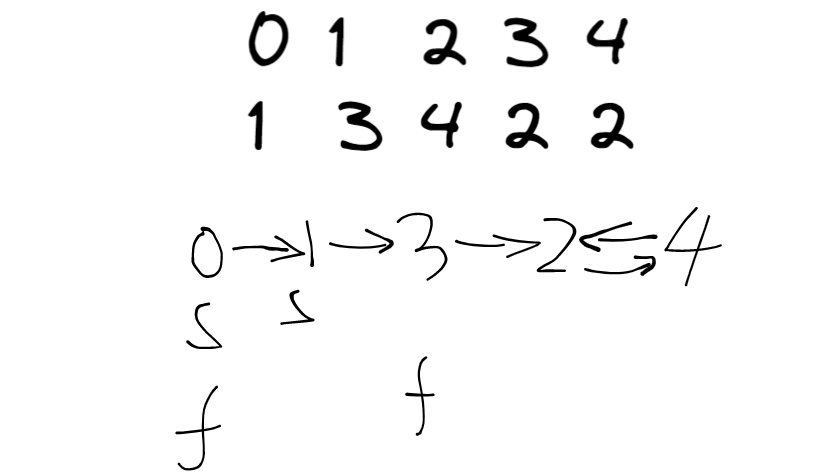 0 1 2 3 4
1 3 4 2 2
0 → 1 → 3 → 2 ⇄ 4
s s
f f